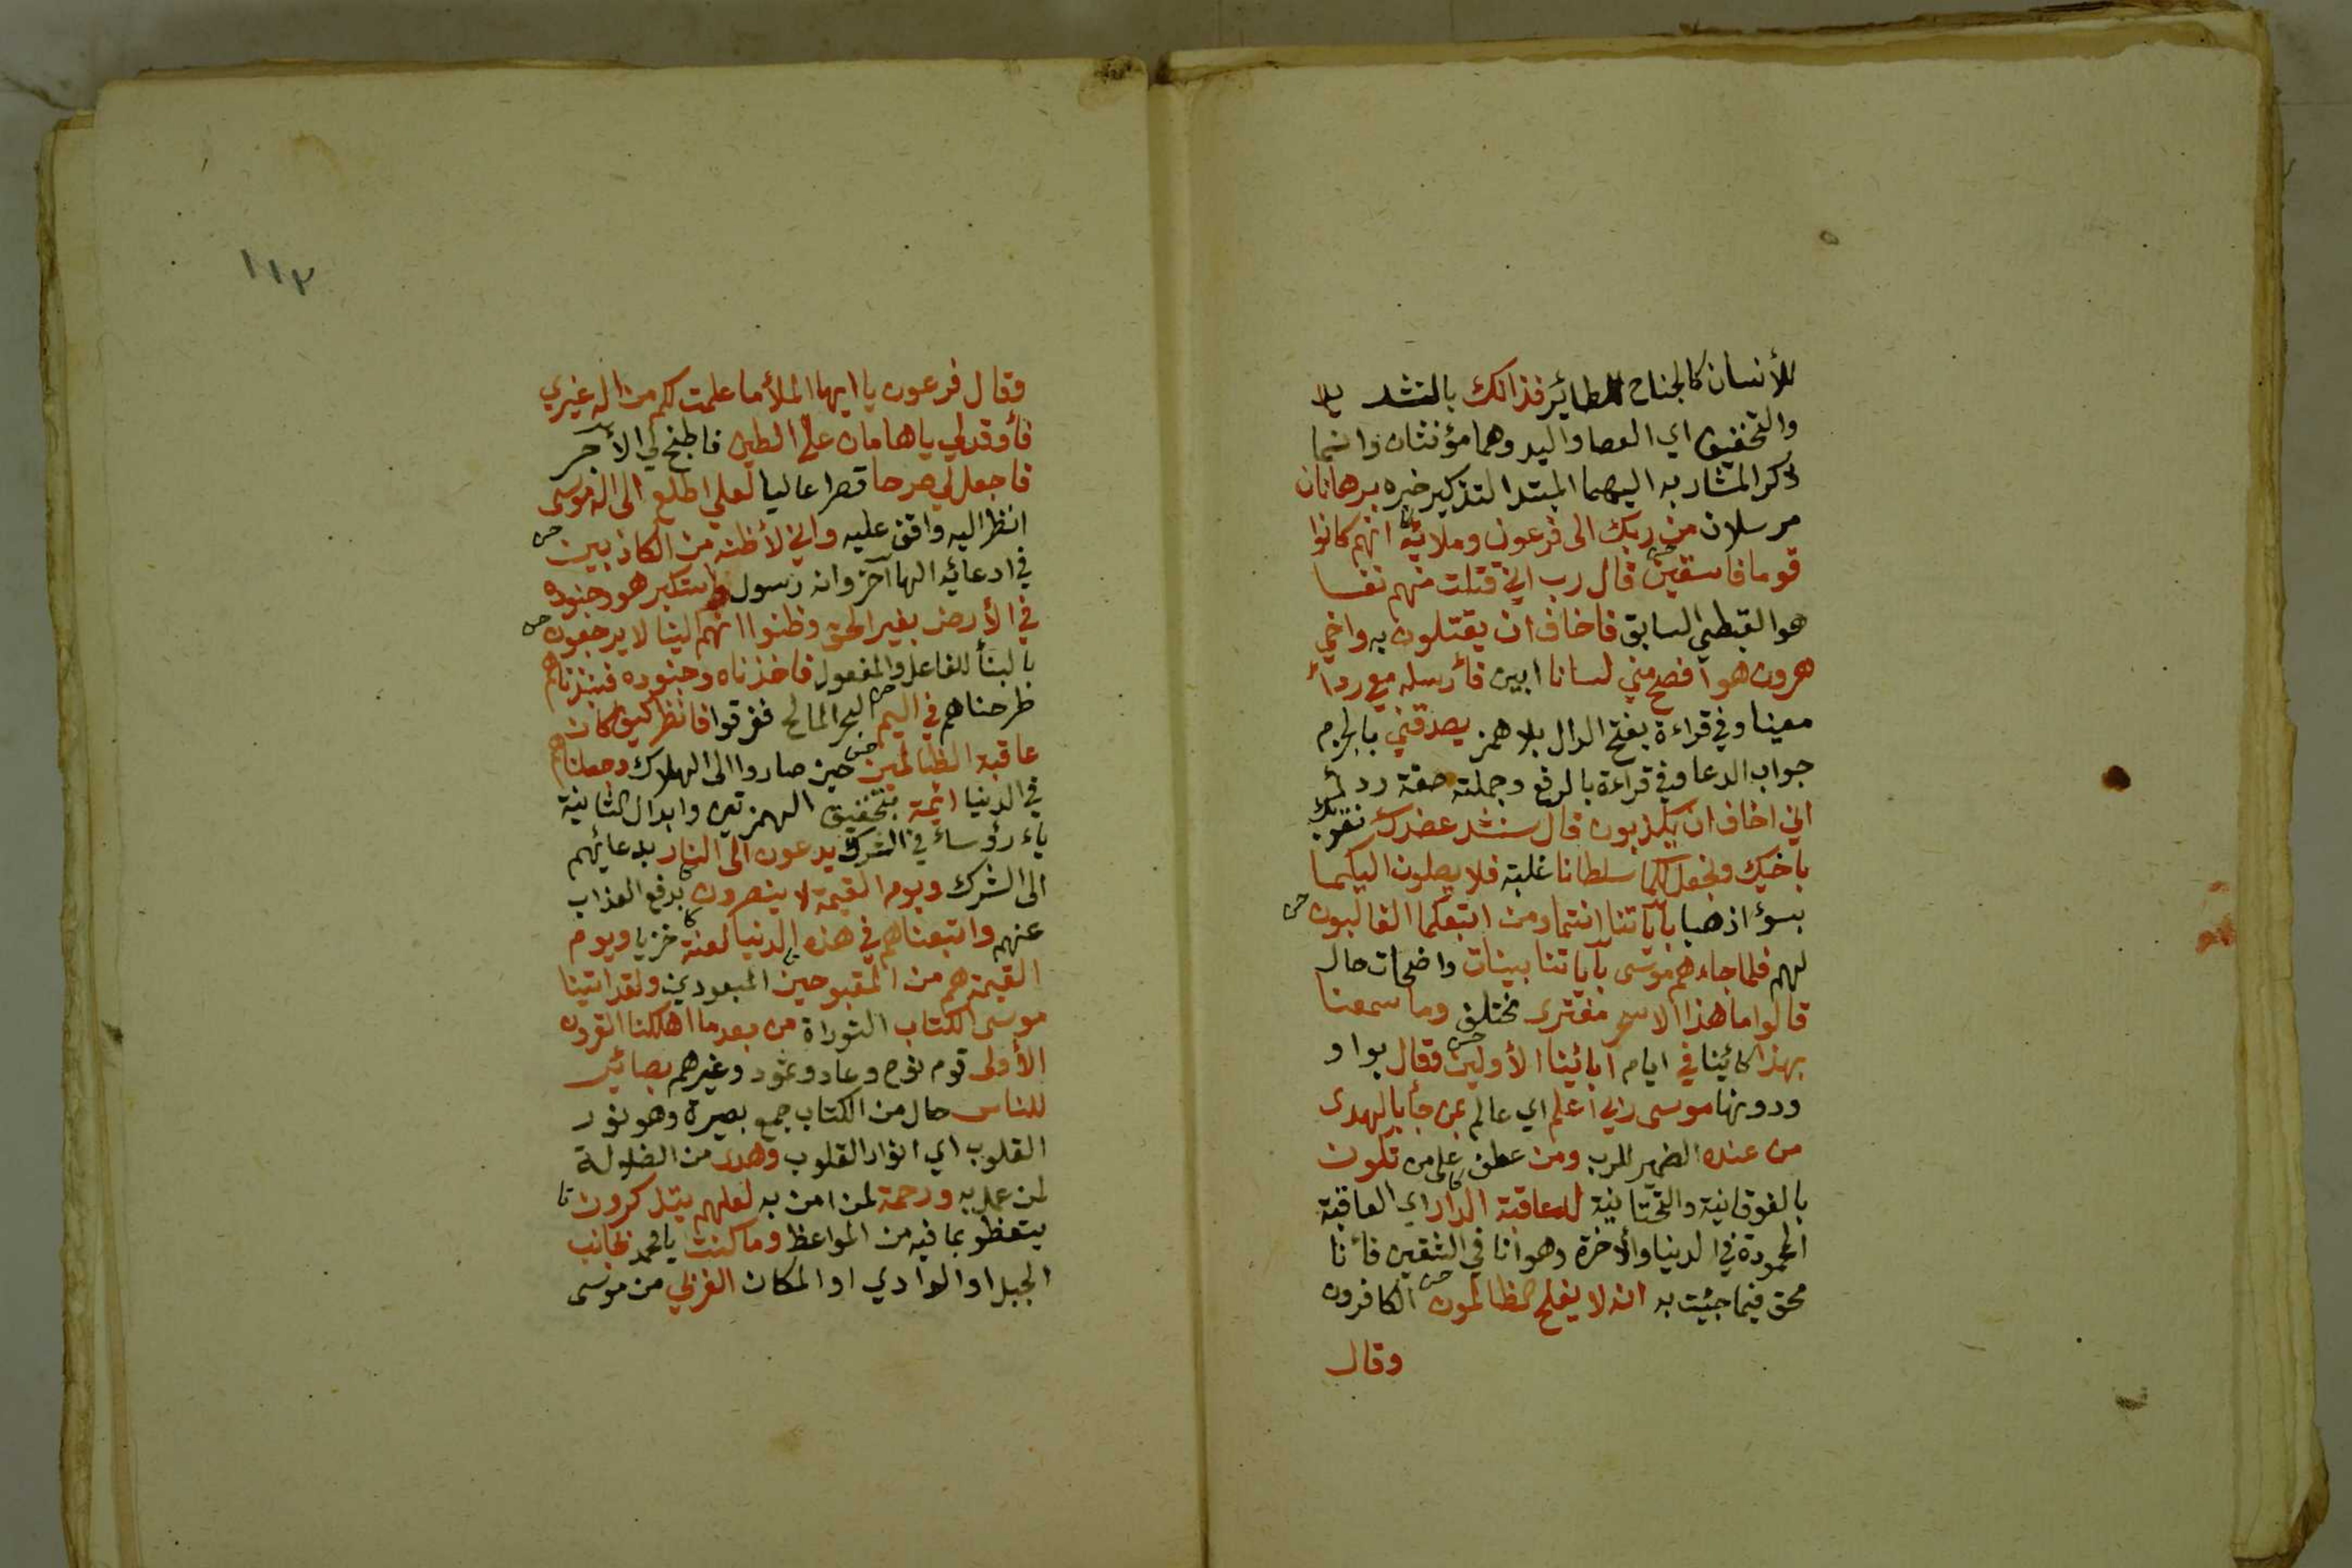 للأنسان كالجناح للطائر فذانك بالتشديد
والتخفيف اي العصا واليد وهما مؤنثان وانما
ذكر المشار به اليهما المبتدا لتذكير خبره برهانان
مرسلان من ربك الى فرعون وملائه انهم كانوا
قوما فاسقين قال رب اني قتلت منهم نفسا
هو القبطي السابق فاخاف ان يقتلون به واخي
هرون هو افصح مني لسانا ابين فأرسله معي ردأ
معينا وفي قراءة بفتح الدال بلا همز يصدقني بالجزم
جواب الدعا وفي قراءة بالرفع وجملته صفة ردأ
اني اخاف ان يكذبون قال سنشد عضدك نقويك
باخيك ونجعل لكما سلطانا غلبة فلا يصلون اليكما
بسوء اذهبا بآياتنا انتما ومن اتبعكما الغالبون
لهم فلما جاءهم موسى بآياتنا بينات واضحات حال
قالوا ما هذا الا سحر مفترى مختلق وما سمعنا
بهذا كائنا في ايام آبائنا الأولين وقال بواو
ودونها موسى ربي أعلم اي عالم بمن جأ بالهدى
من عنده الضمير للرب ومن عطف على من تكون
بالفوقانية والتحتانية له عاقبة الدار اي العاقبة
المحمودة في الدنيا والأخرة وهو أنا في الشقين فأنا
محق فيما جيئت به انه لا يفلح الظالمون الكافرون
وقال
وقال فرعون يا ايها الملأ ما علمت لكم من اله غيري
فأوقد لي يا هامان على الطين فاطبخ لي الأجر
فاجعل لي صرحا قصرا عاليا لعلي اطلع الى اله موسى
انظر اليه واقف عليه واني لأظنه من الكاذبين
في ادعائه الها آخر وانه رسول واستكبر هو وجنوده
في الأرض بغير الحق وظنوا انهم الينا لا يرجعون
بالبنأ للفاعل والمفعول فاخذناه وجنوده فنبذناهم
طرحناهم في اليم البحر المالح فغرقوا فانظر كيف كان
عاقبة الظالمين حين صاروا الى الهلاك وجعلناهم
في الدنيا ائمة بتحقيق الهمزتين وابدال الثانية
ياء رؤساء في الشرك يدعون الى النار بدعائهم
الى الشرك ويوم القيمة لا ينصرون بدفع العذاب
عنهم واتبعناهم في هذه الدنيا لعنة خزيا ويوم
القيمة هم من المقبوحين المبعودين ولقد اتينا
موسى الكتاب التوراة من بعد ما اهلكنا القرون
الأولى قوم نوح وعاد وثمود وغيرهم بصائر
للناس حال من الكتاب جمع بصيرة وهو نور
القلوب اي انوار القلوب وهدى من الضلالة
لمن عمل به ورحمة لمن امن به لعلهم يتذكرون
يتعظو بما فيه من المواعظ وما كنت يا محمد بجانب
الجبل او الوادي او المكان الغربي من موسى
١١٢